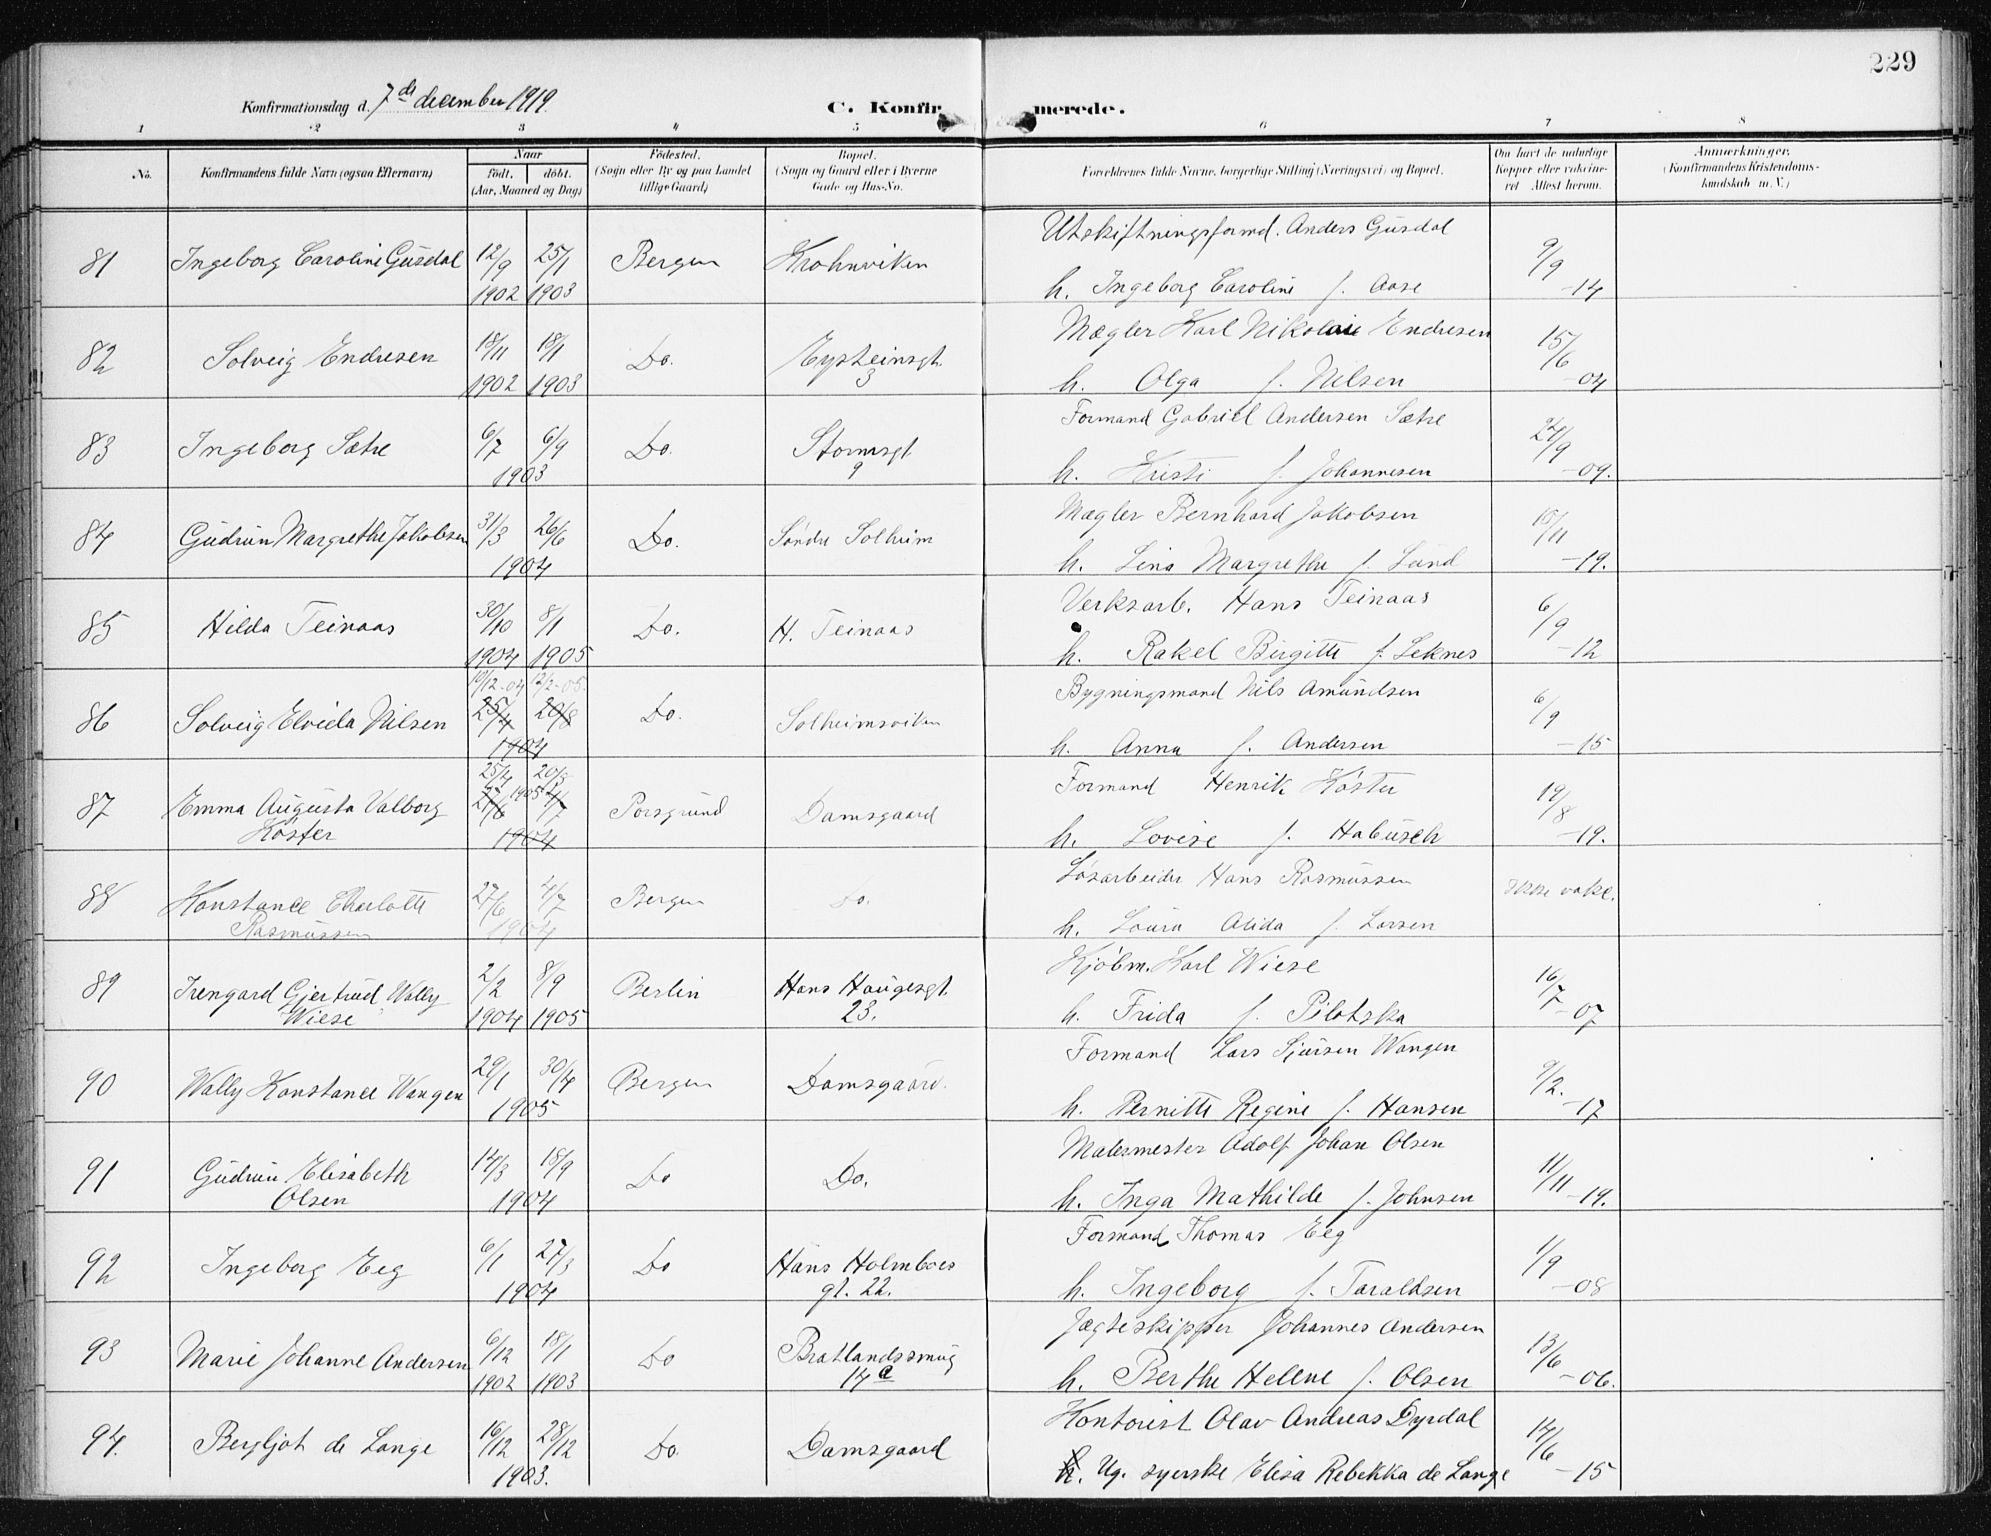 229
Konfirmationsdag d. 7de december 1919.
C. Konfirmerede.
1 2 3 4 5 6 7 8
No.
Konfirmandens fulde Navn (ogsaa Efternavn)
Naar
født. døbt.
(Aar, Maaned og Dag)
Fødested.
(Sogn eller By og paa Landet
tillige Gaard)
Bopæl.
(Sogn og Gaard eller i Byerne
Gade og Hus-No.
Forældrenes fulde Navne, borgerlige Stilling (Næringsvei) og Bopæl.
Om havt de naturlige
Kopper eller vakcine-
ret Attest herom.
Anmærkninger.
(Konfirmandens Kristendoms-
kundskab m. V.)
Utskiftningsformd. Anders Gusdal
81 Ingeborg Caroline Gusdal 12/9 25/1 Bergen Krohnviken 9/9
1902 1903 h. Ingeborg Caroline f. Aase -14
Mægler Karl Nikolai Endresen
82 Solveig Endresen 18/11 18/1 Do. Eysteinsgt. 15/6
1902 1903 3 h. Olga f. Nilsen -04
Formand Gabriel Andersen Sætre
83 Ingeborg Sætre 6/7 6/9 Do. Stormsgt 24/9
1903 9 h. Kristi f. Johannesen -09.
Mægler Bernhard Jakobsen
84 Gudrun Margrethe Jakobsen 31/3 26/6 Do. Søndre Solheim 18/11
1904 h. Lina Margrethe f. Lund -19.
Verksarb. Hans Teinaas
85 Hilda Teinaas 30/10 8/1 Do. H. Teinaas 6/9
1904 1905 h. Rakel Birgitte f. Leknes -12
19/12-04 12/2-05. Bygningsmand Nils Amundsen
86 Solveig Elvida Nilsen 25/4 20/8 Do. Solheimsviken 6/9
1904 h. Anna f. Andersen -15
25/4 20/8 Formand Henrik Köster
87 Emma Augusta Valborg 27/6 1905 4/7 Porsgrund Damsgaard 19/8
Köster 1904 h. Lovise f. Habusch -19.
Løsarbeider Hans Rasmussen
88 Konstance Charlotte 27/6 4/7 Bergen Do. ikke vakc.
Rasmussen 1904 h. Laura Alida f. Larsen
Kjøbm. Karl Wiese
89 Irengard Gjertrud Wally 2/2 8/9 Berlin Hans Haugesgt. 16/7
Wiese 1904 1905 23. h. Frida f. Pilotska -07
Formand Lars Sjursen Wangen
90 Wally Konstance Wangen 29/1 30/4 Bergen Damsgaard. 9/2.
1905 h. Pernitte Regine f. Hansen -17
Malermester Adolf Johan Olsen
91 Gudrun Elisabeth 14/3 18/9 Do Do. 11/11
Olsen 1904 h. Inga Mathilde f. Johnsen -19.
Formand Thomas Eeg
92 Ingeborg Eeg 6/1 27/3 Do Hans Holmboes 1/9
1904 gt. 22. h. Ingeborg f. Taraldsen -08
Jægteskipper Johannes Andersen
93 Marie Johanne Andersen 6/12 18/1 Do Bratlandssmug 13/6
1902 1903 14a h. Berthe Hellene f. Olsen -06.
Kontorist Olav Andreas Dyrdal
94. Bergljot de Lange 16/12 28/12 Do. Damsgaard 14/6
1903. h. Ug. syerske Elisa Rebekka de Lange -15